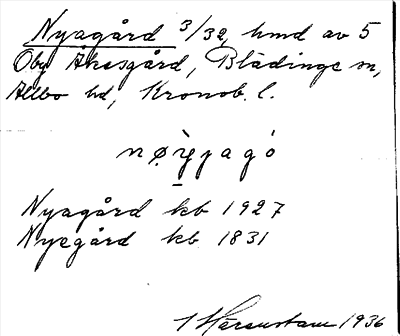 Nyagård 3/32 hmd av 5
Öby Åkesgård, Blädinge sn,
Allbo hd, Kronob. l.
Nyagård kb 1927
Nyegård kb 1831
1936